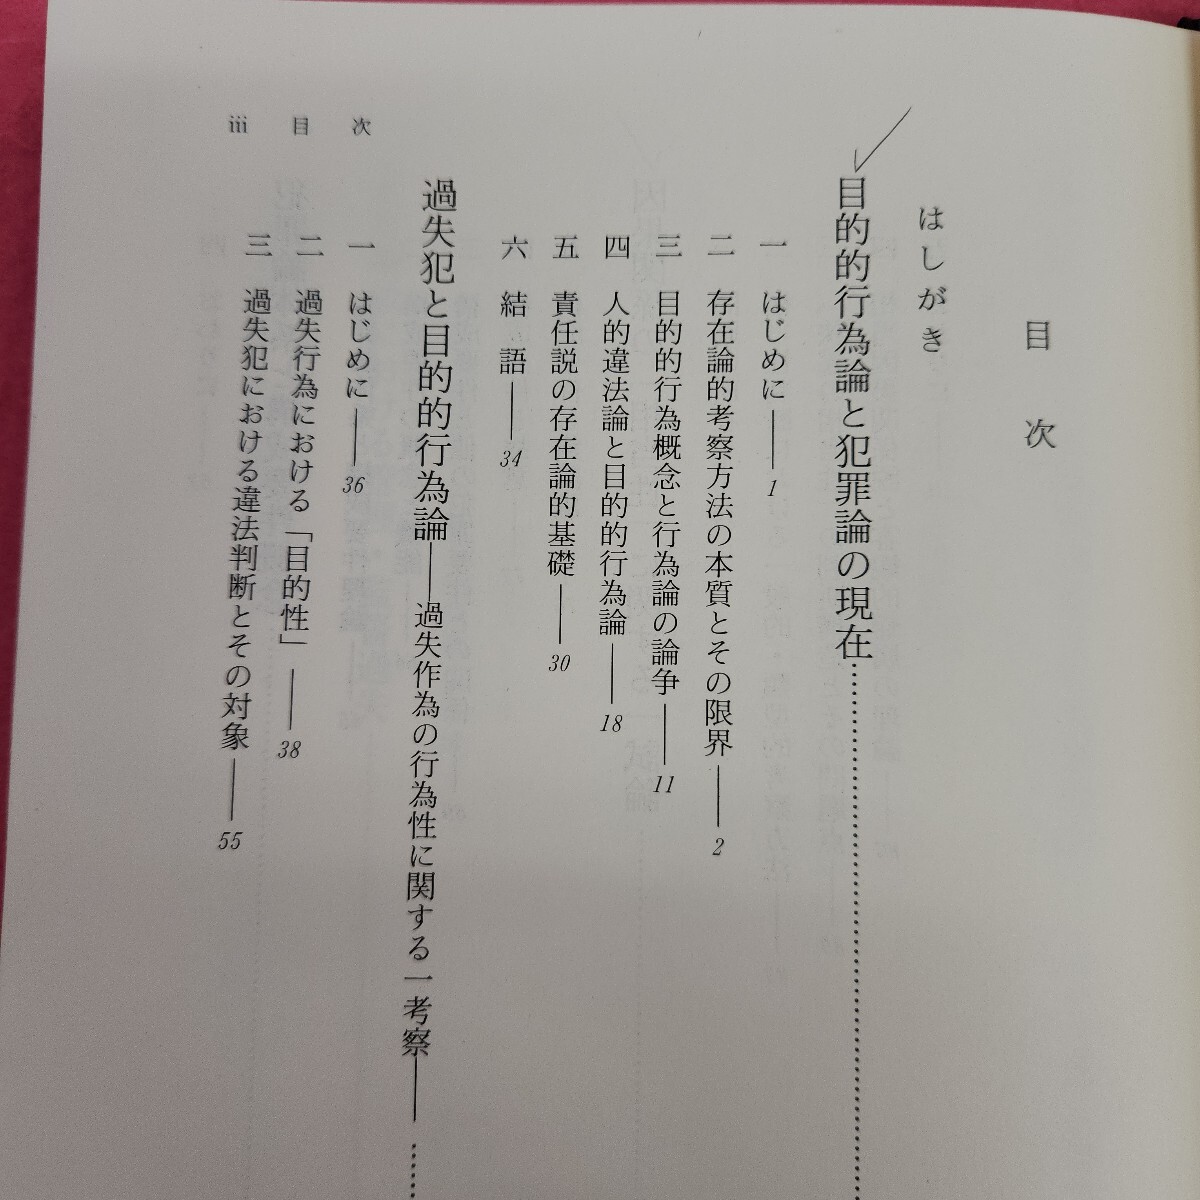 目次
はしがき
目的的行為論と犯罪論の現在……………………
一 はじめに――1
二 存在論的考察方法の本質とその限界――2
三 目的的行為概念と行為論の論争――11
四 人的違法論と目的的行為論――18
五 責任説の存在論的基礎――30
六 結語――34
過失犯と目的的行為論――過失作為の行為性に関する一考察――……
一 はじめに――36
二 過失行為における「目的性」――38
三 過失犯における違法判断とその対象――55
iii 目次